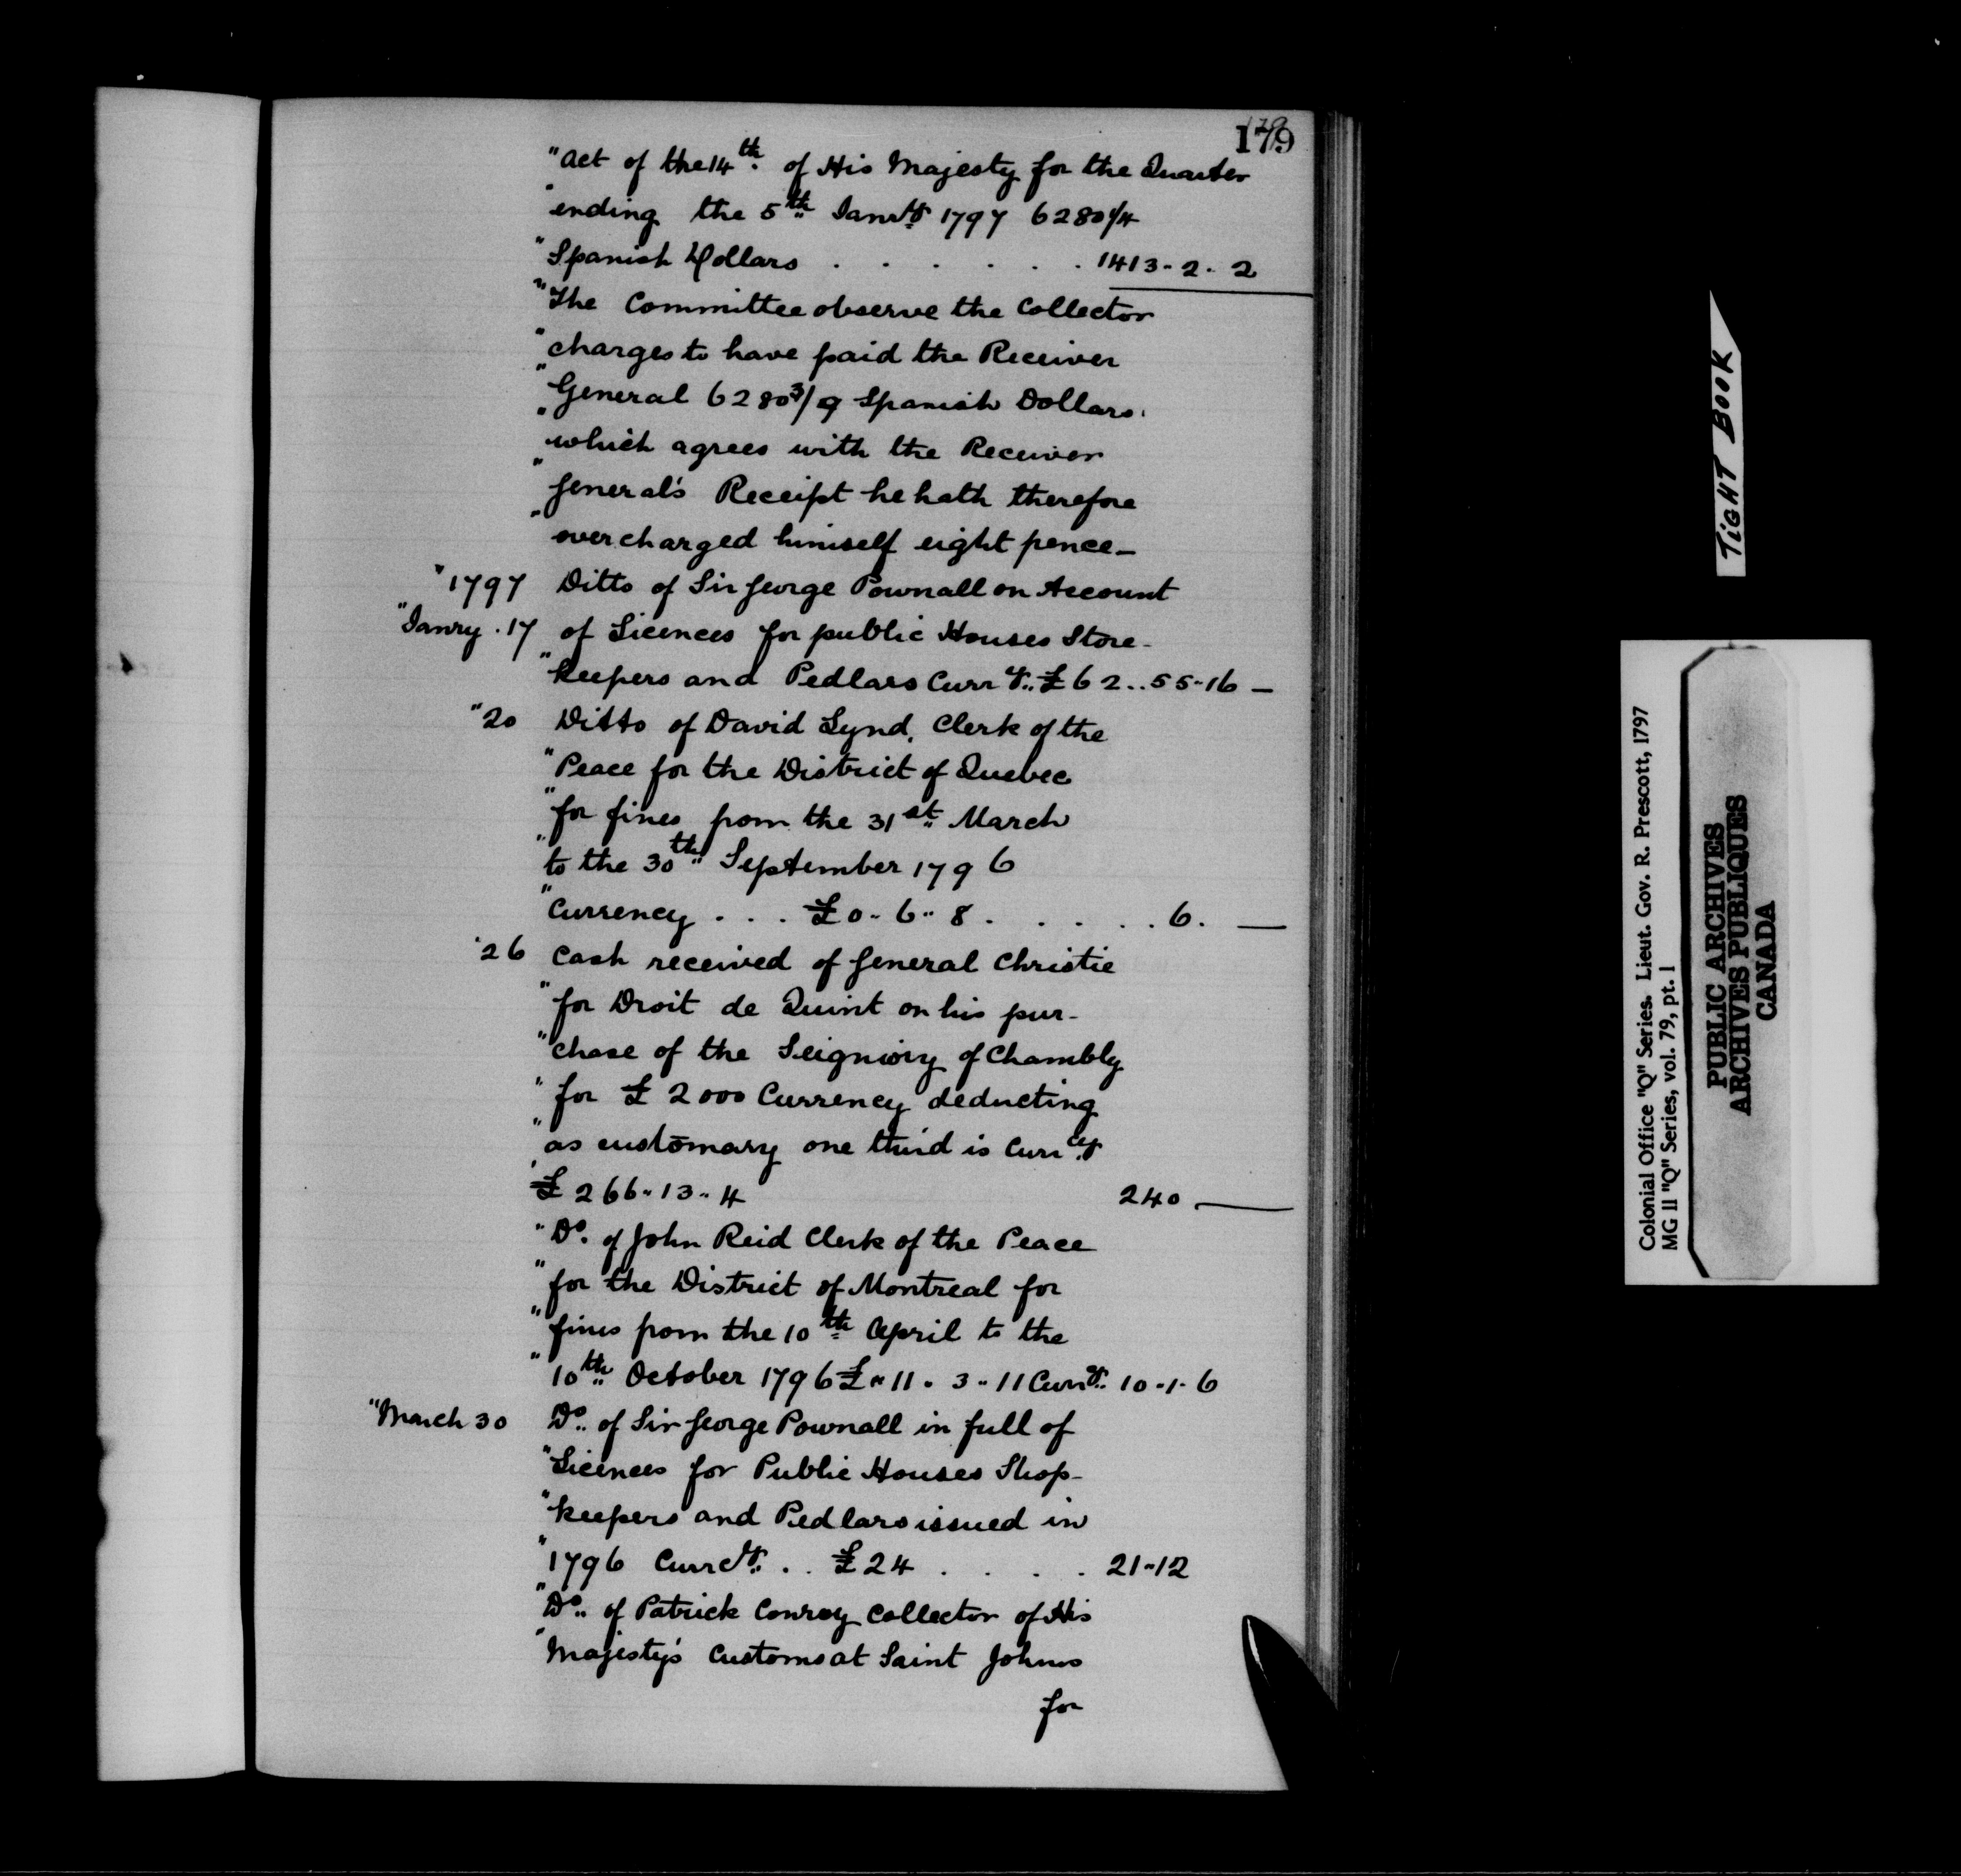 179
"Act of the 14th. of His Majesty for the Quarter
"ending the 5th Janry 1797 6280 1/4
"Spanish Dollars . . . . . . 1413-2-2
"The Committee observe the Collector
"charges to have paid the Receiver
"General 6280 3/9 Spanish Dollars.
"which agrees with the Receiver
"General's Receipt he hath therefore
"overcharged himself eight pence—
"1797 Ditto of Sir George Pownall on Account
"Janry. 17 of Licences for public Houses Store-
"keepers and Pedlars Curry. £62..55-16—
"20 Ditto of David Lynd, Clerk of the
"Peace for the District of Quebec
"for fines from the 31st. March
"to the 30th September 1796
"Currency . . . £0-6-8 . . . . . 6. —
"26 Cash received of General Christie
"for Droit de Quint on his pur-
"chase of the Seigniory of Chambly
"for £2000 Currency deducting
"as customary one third is Currcy
£266-13-4 240 —
"Do. of John Reid Clerk of the Peace
"for the District of Montreal for
"fines from the 10th April to the
"10th October 1796 £"11-3-11 Curry. 10-1-6
"March 30 Do. of Sir George Pownall in full of
"Licences for Public Houses Shop-
"keepers and Pedlars issued in
"1796 Curry. . . £24 . . . . 21-12
"Do. of Patrick Conroy Collector of His
"Majesty's Customs at Saint Johns
for
TIGHT BOOK
Colonial Office "Q" Series. Lieut. Gov. R. Prescott, 1797
MG 11 "Q" Series, vol. 79, pt. 1
PUBLIC ARCHIVES
ARCHIVES PUBLIQUES
CANADA